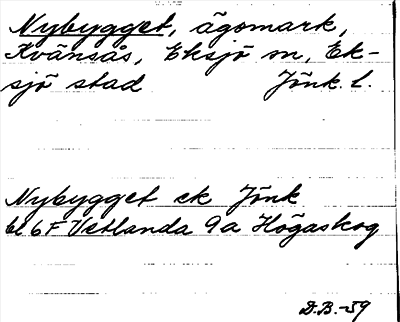 Nybygget, ägomark,
Kvänsås, Eksjö sn, Ek-
sjö stad Jönk. l.
Nybygget ek Jönk
bl 6F Vetlanda 9a Högaskog
D.B.-59